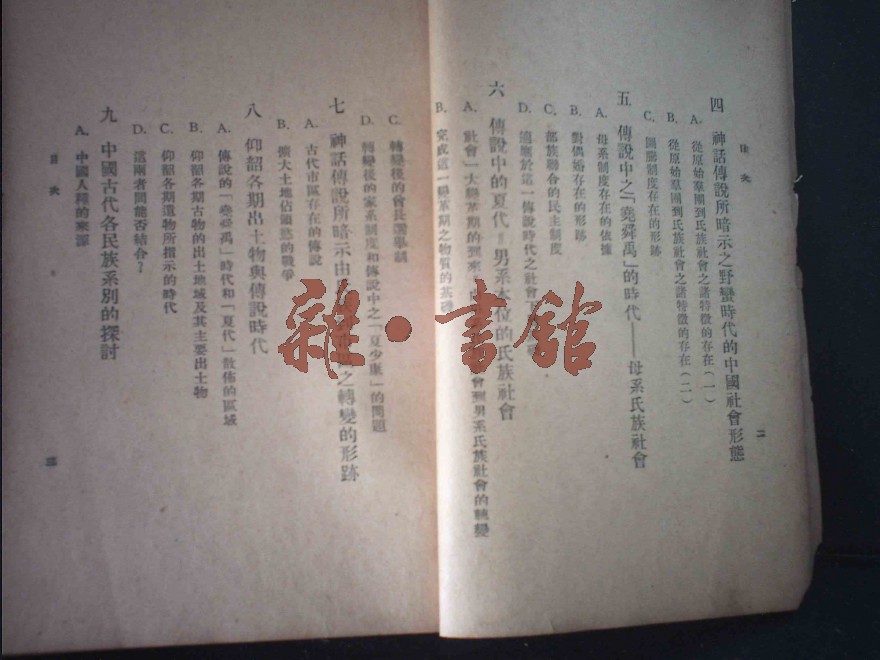 目次
二
四 神話傳說所暗示之野蠻時代的中國社會形態
A. 從原始羣團到氏族社會之諸特徵的存在（一）
B. 從原始羣團到氏族社會之諸特徵的存在（二）
C. 圖騰制度存在的形跡
五 傳說中之「堯舜禹」的時代——母系氏族社會
A. 母系制度存在的依據
B. 對偶婚存在的形跡
C. 部族聯合的民主制度
D. 適應於這一傳說時代之社會
六 傳說中的夏代＝男系本位的氏族社會
A. 社會一大變革期的到來 會到男系氏族社會的轉變
B. 完成這一變革期之物質的基礎
C. 轉變後的酋長選舉制
D. 轉變後的家系制度和傳說中之「夏少康」的問題
七 神話傳說所暗示由 之轉變的形跡
A. 古代市區存在的傳說
B. 擴大土地佔領慾的戰爭
八 仰韶各期出土物與傳說時代
A. 傳說的「堯舜禹」時代和「夏代」散佈的區域
B. 仰韶各期古物的出土地域及其主要出土物
C. 仰韶各期遺物所指示的時代
D. 這兩者間能否結合？
九 中國古代各民族系別的探討
A. 中國人種的來源
目次
三
雜·書館